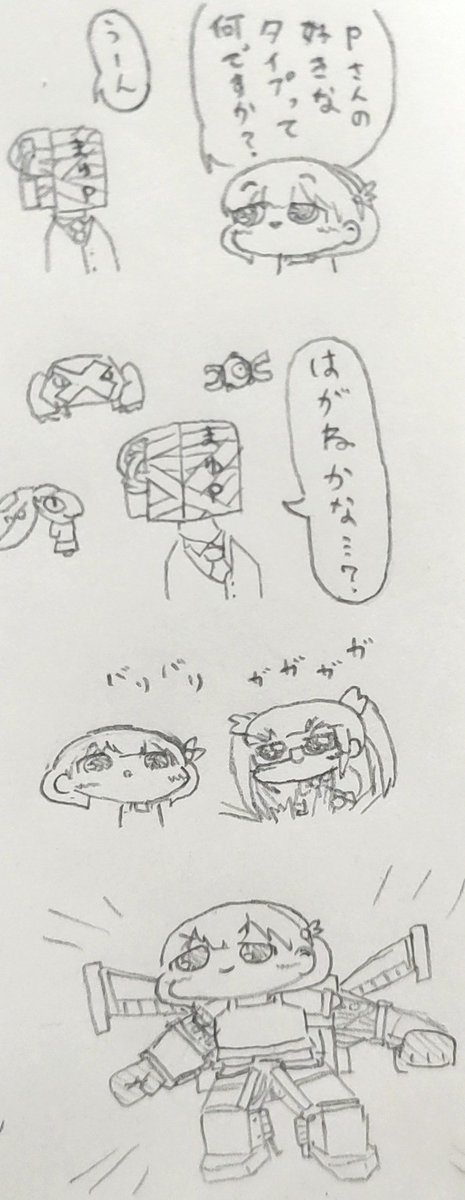 Pさんの
好きな
タイプって
何ですか?
うーん
まゆP
はがねかな…?
まゆP
ガガガガ
バリバリ